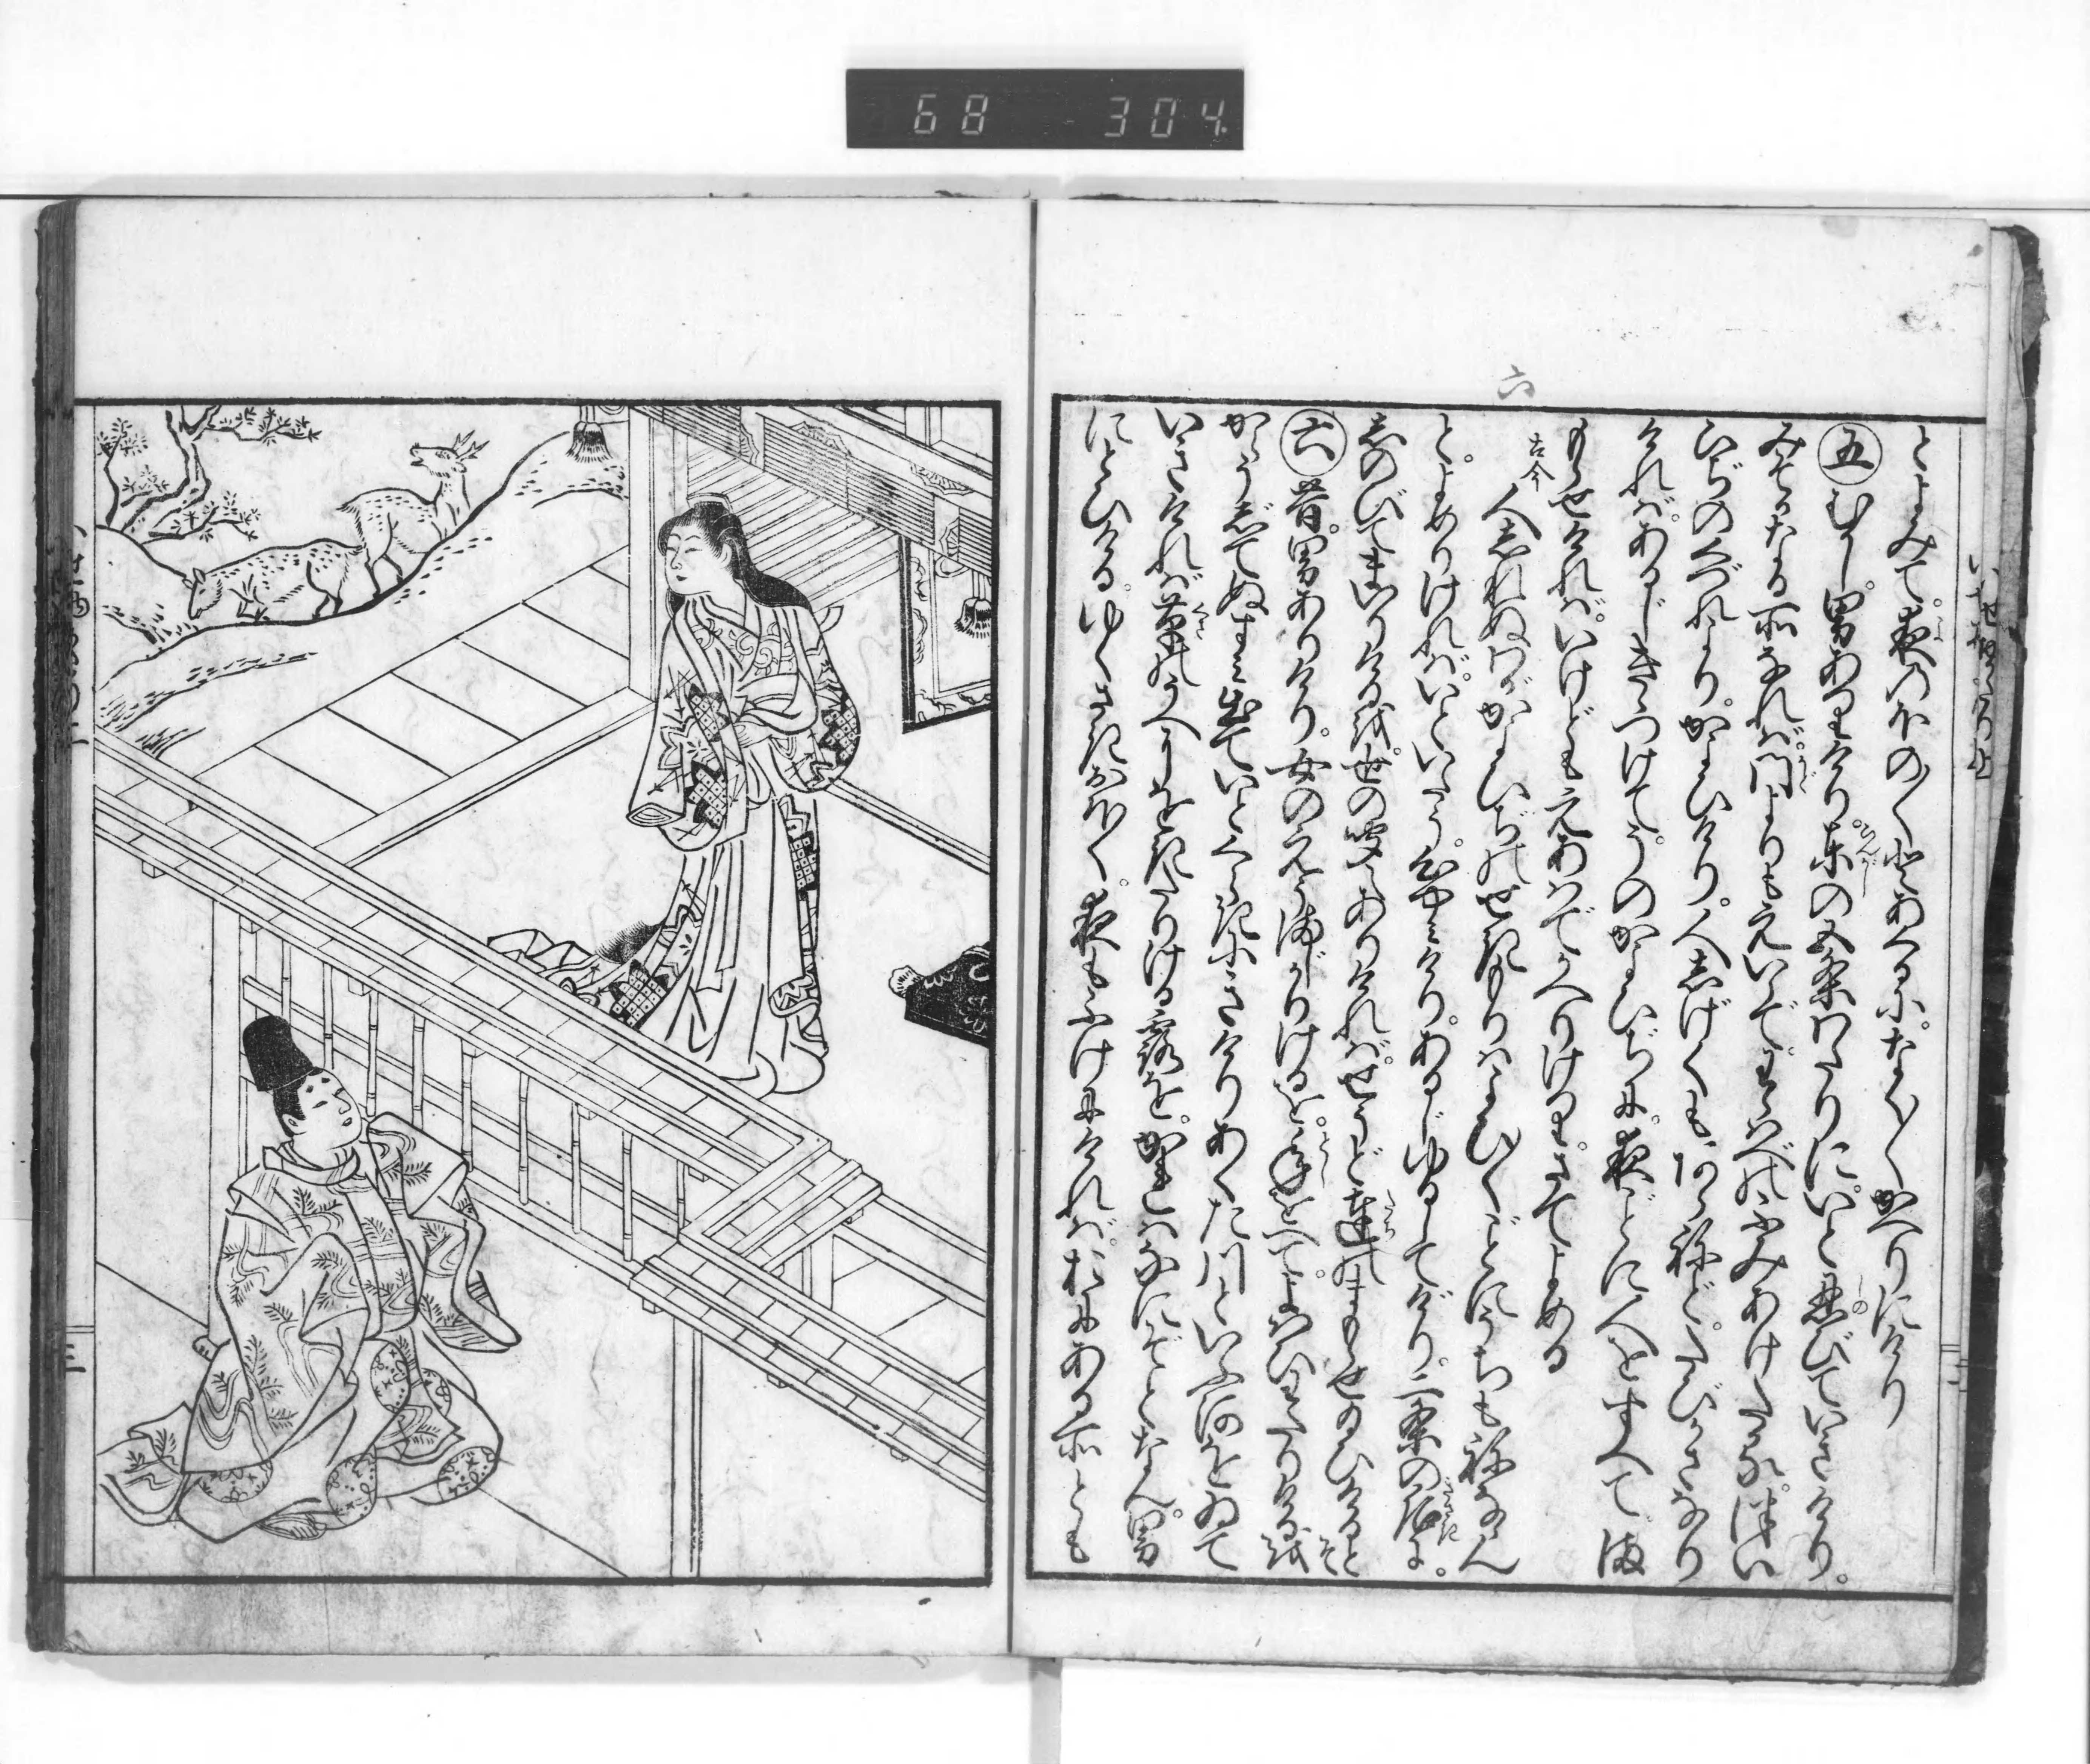 68 304
六
とよみて。夜のほの〳〵とあくるに。なく〳〵かへりにけり
五 むかし。男ありけり。東の五条わたりに。いと忍びていきけり。
みそかなる所なれば。門よりもえいらで。わらはべのふみあけたるつい
ひぢのくづれより。かよひけり。人しげくもあらねど。たびかさなり
ければ。あるじきゝつけて。そのかよひぢに。夜ごとに人をすへて。ま
もらせければ。いけどもえあはでかへりける。さてよめる
古今 人しれぬわがかよひぢのせきもりはよひ〳〵ごとにうちもねなゝん
と。よめりければ。いといたう。心やみけり。あるじゆるしてげり。二条の后に。
しのびてまいりけるを。世の聞えありければ。せうと達のまもらせ給ひけるとぞ
六 昔。男ありけり。女のえうまじかりけるを。年をへて。よばひわたりけるを
からうじてぬすみ出て。いとくらきにきけりあくた川といふ河をゐて
いきければ草のうへにをきたりける露を。かれはなにぞとなん。男
にとひける。ゆくさきおほく。夜もふけにければ。おにある所とも